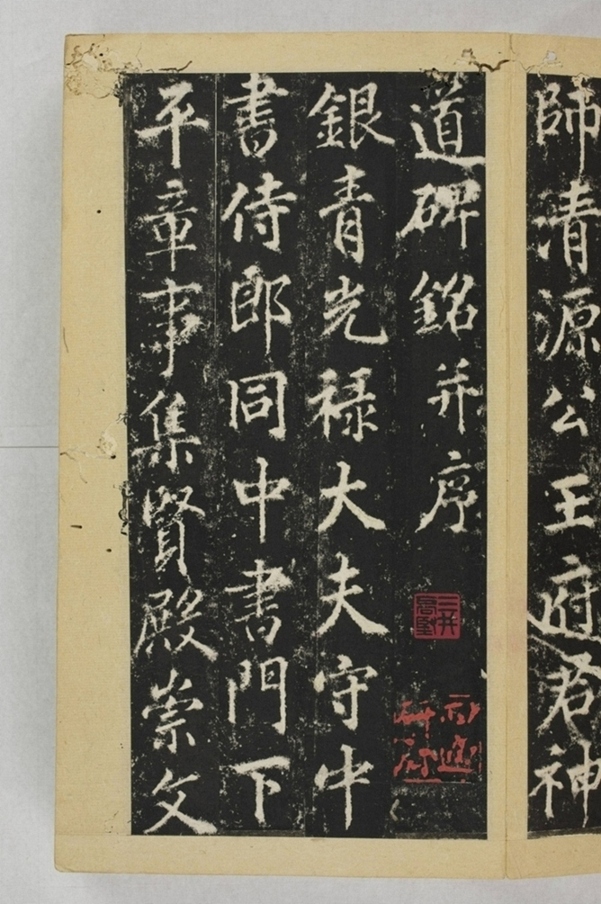 師清源公王府君神
道碑銘并序
銀青光禄大夫守中
書侍郎同中書門下
平章事集賢殿崇文